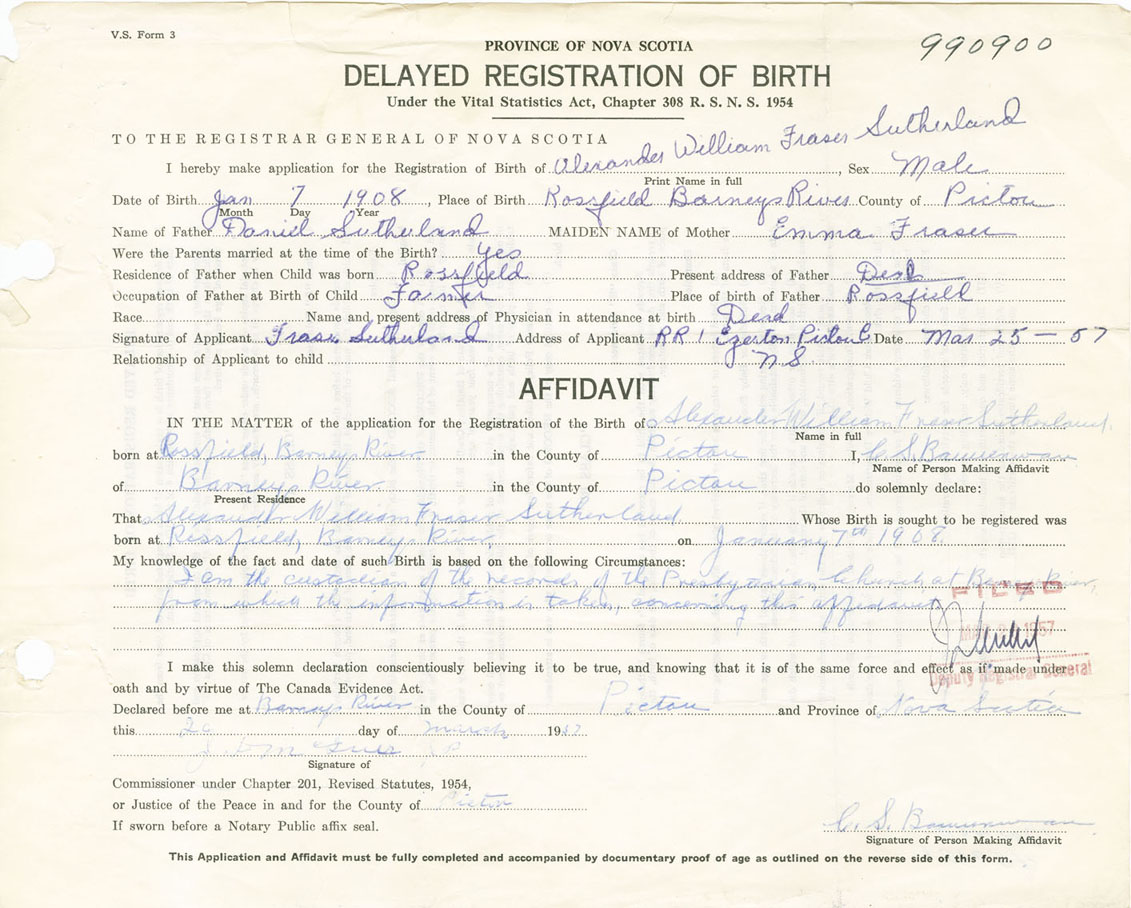 V.S. Form 3
990900
PROVINCE OF NOVA SCOTIA
DELAYED REGISTRATION OF BIRTH
Under the Vital Statistics Act, Chapter 308 R. S. N. S. 1954
TO THE REGISTRAR GENERAL OF NOVA SCOTIA
I hereby make application for the Registration of Birth of Alexander William Fraser Sutherland, Sex Male
Print Name in full
Date of Birth Jan 7 1908, Place of Birth Rossfield Barneys River County of Pictou
Month Day Year
Name of Father Daniel Sutherland MAIDEN NAME of Mother Emma Fraser
Were the Parents married at the time of the Birth? Yes
Residence of Father when Child was born Rossfield Present address of Father Dead
Occupation of Father at Birth of Child Farmer Place of birth of Father Rossfield
Race Name and present address of Physician in attendance at birth Dead
Signature of Applicant Fraser Sutherland Address of Applicant RR 1 Egerton Pictou C Date Mar 25 - 57
N S
Relationship of Applicant to child
AFFIDAVIT
IN THE MATTER of the application for the Registration of the Birth of Alexander William Fraser Sutherland,
Name in full
born at Rossfield, Barneys River in the County of Pictou I, C. S.
Name of Person Making Affidavit
of Barneys River in the County of Pictou do solemnly declare:
Present Residence
That Alexander William Fraser Sutherland Whose Birth is sought to be registered was
born at Rossfield, Barneys River, on January 7th 1908.
My knowledge of the fact and date of such Birth is based on the following Circumstances:
I am the custodian of the records of the Presbyterian Church at Barneys River,
from which the information is taken, concerning this affidavit
FILED
1957
I make this solemn declaration conscientiously believing it to be true, and knowing that it is of the same force and effect as if made under
Deputy Registrar General
oath and by virtue of The Canada Evidence Act.
Declared before me at Barneys River in the County of Pictou and Province of Nova Scotia
this day of March 1957
Signature of
Commissioner under Chapter 201, Revised Statutes, 1954,
or Justice of the Peace in and for the County of Pictou
If sworn before a Notary Public affix seal.
C. S.
Signature of Person Making Affidavit
This Application and Affidavit must be fully completed and accompanied by documentary proof of age as outlined on the reverse side of this form.